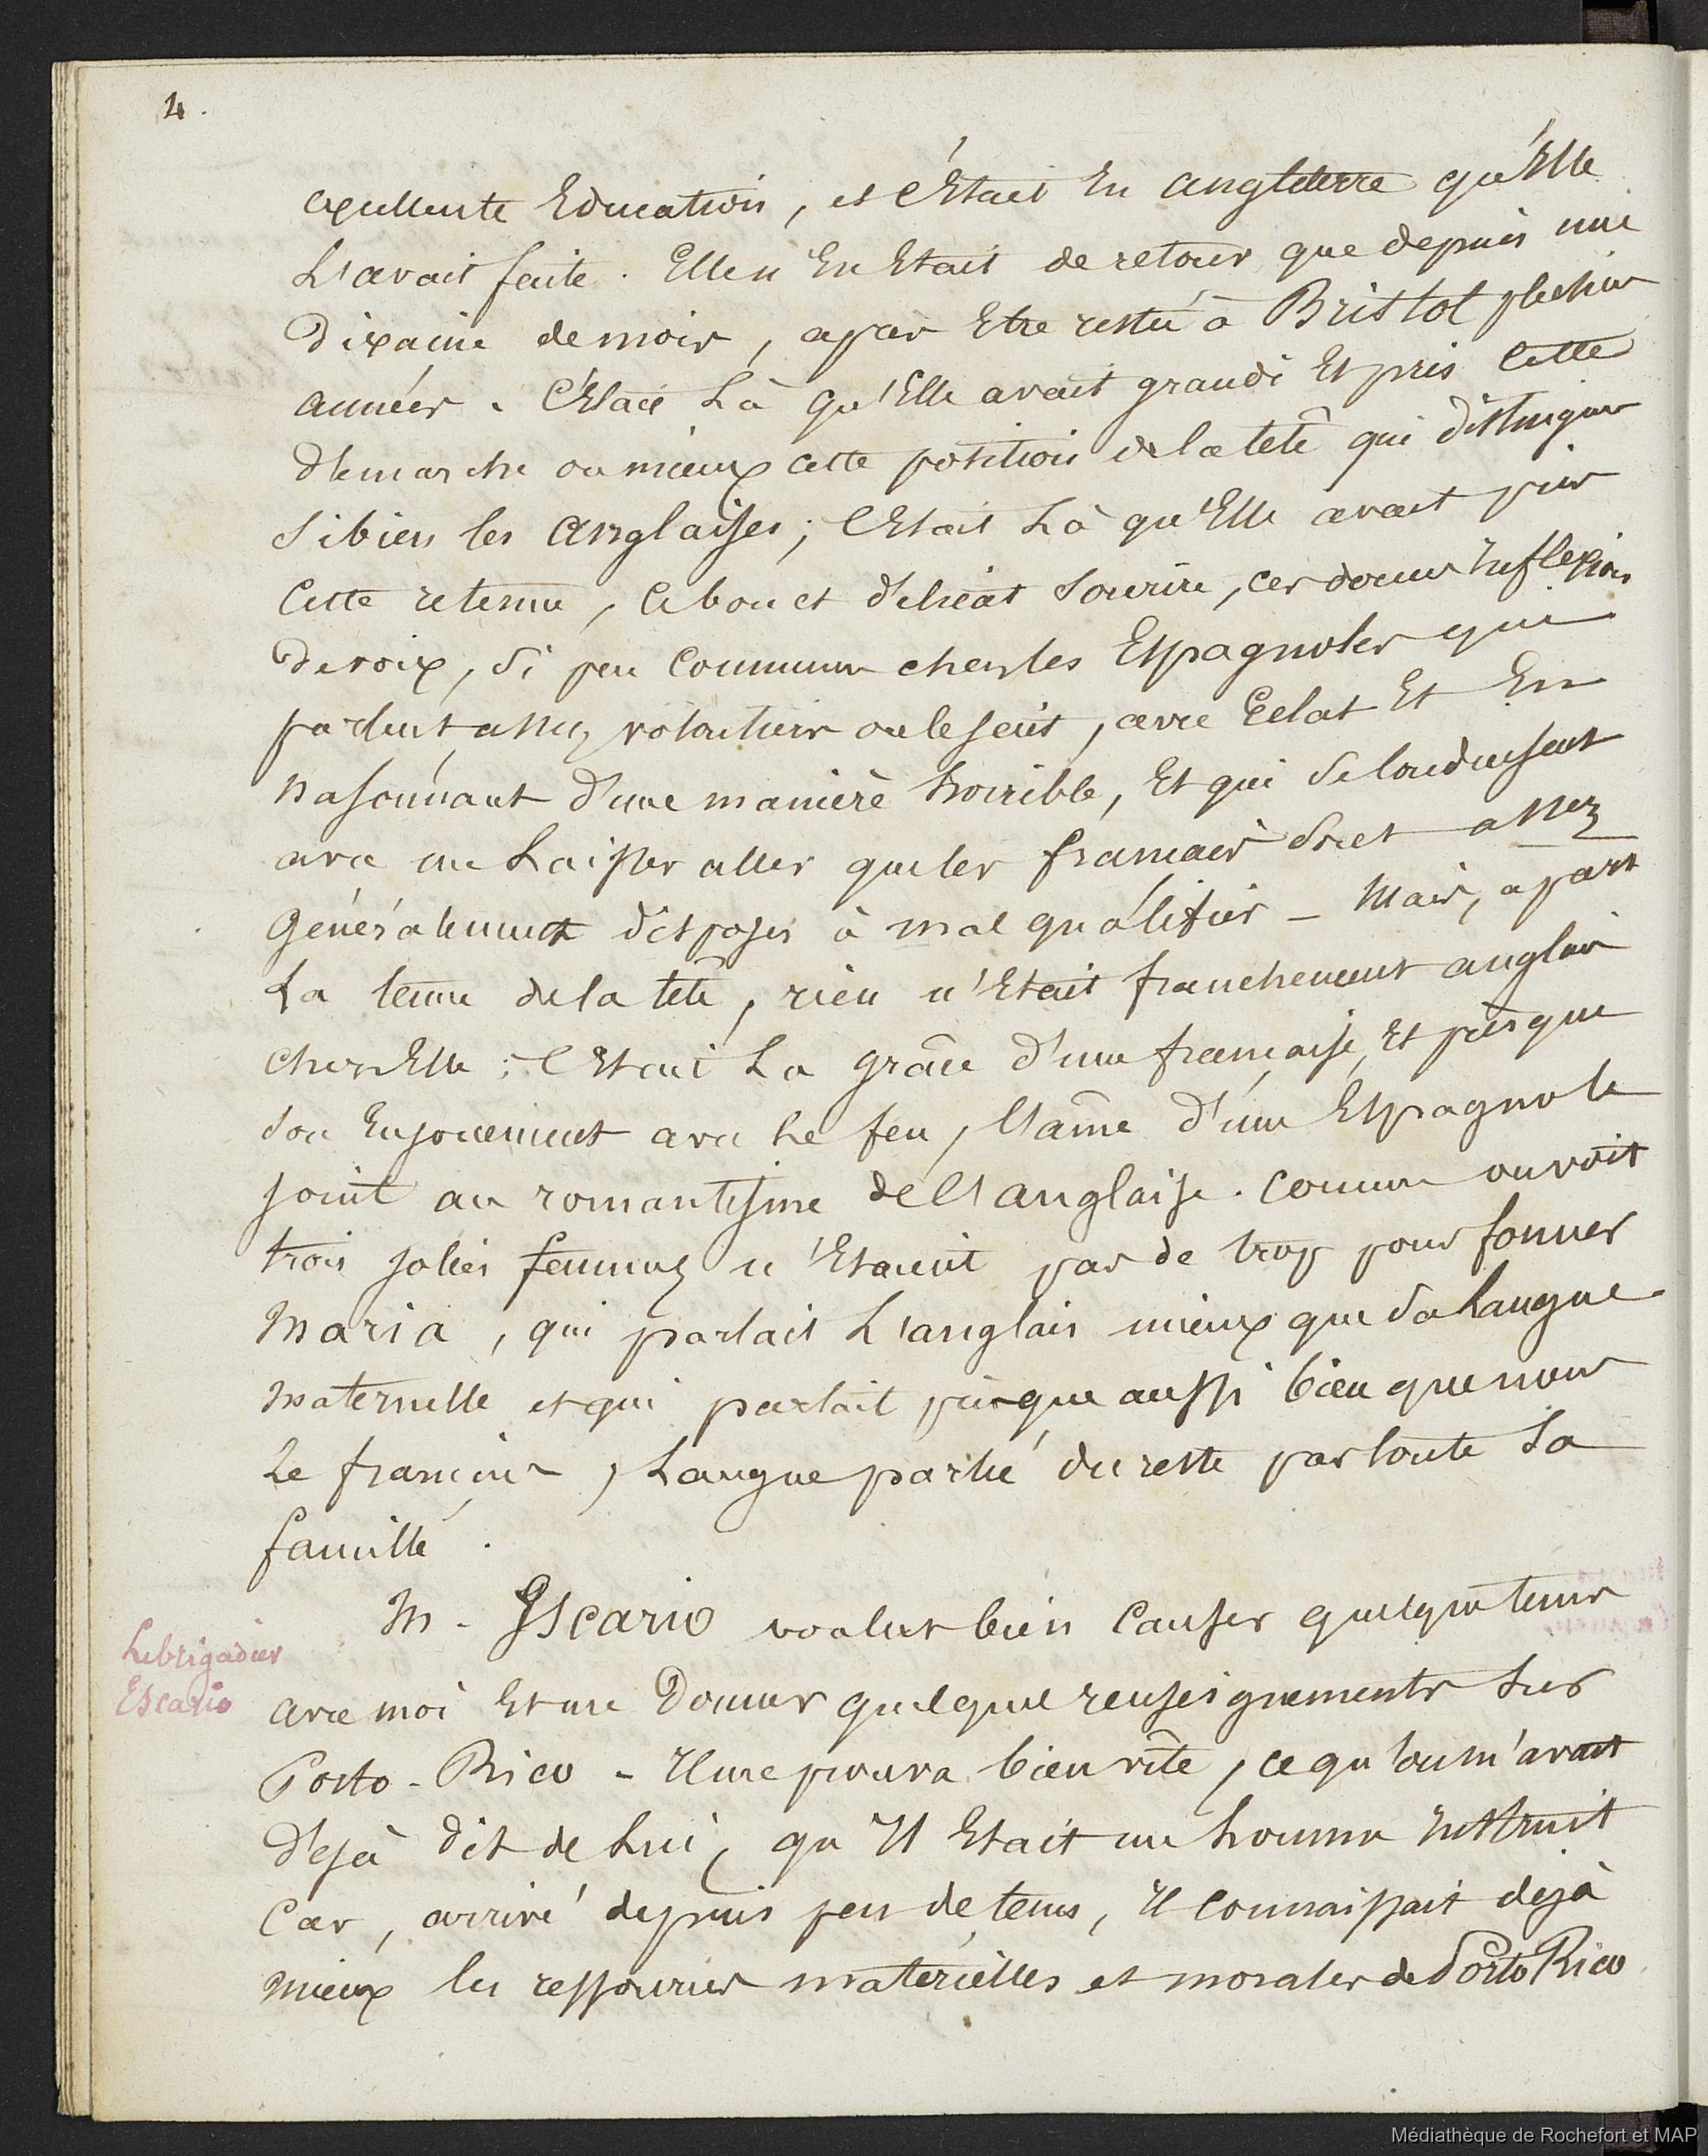 4.
excellente Education, et c'Etait En angleterre qu'Elle
L'avait faite. Elle n'En Etait de retour que depuis une
Dixaine de mois, après Etre restée à Bristol plusieurs
années. C'Etait Là qu'Elle avait grandi Et pris cette
démarche ou mieux cette position de la tête qui distingue
si bien les anglaises; C'Etait Là qu'Elle avait pris
Cette retenue, ce bon et délicat Sourire, ces douces Inflexions
de voix, si peu Communes chez les Espagnoles qui
parlent assez volontiers on le sait, avec Eclat Et En
nasonnant d'une manière horrible, Et qui se conduisent
avec un Laisser aller que les français sont assez
généralement disposés à mal qualifier - Mais, apart
La tenue de la tête, rien n'Etait franchement anglais
chez Elle; C'Etait La grâce d'une française, Et presque
son Enjouement avec Le feu, l'âme d'une Espagnole
joint au romantisme de l'anglaise. Comme on voit
trois jolies femmes n'Etaient pas de trop pour former
Maria, qui parlait L'anglais mieux que sa Langue
maternelle et qui parlait presque aussi bien que nous
Le français, Langue parlée du reste par toute Sa
famille.
M. Escario voulut bien Causer quelque tems
Le brigadier
Escario
avec moi Et me Donner quelques renseignements sur
Porto-Rico - Il me prouva bien vite, ce qu'on m'avait
déjà dit de Lui, qu'Il Etait un homme Instruit
Car, arrivé depuis peu de tems, Il connaissait déjà
mieux les ressources matérielles et morales de Porto Rico
Médiathèque de Rochefort et MAP